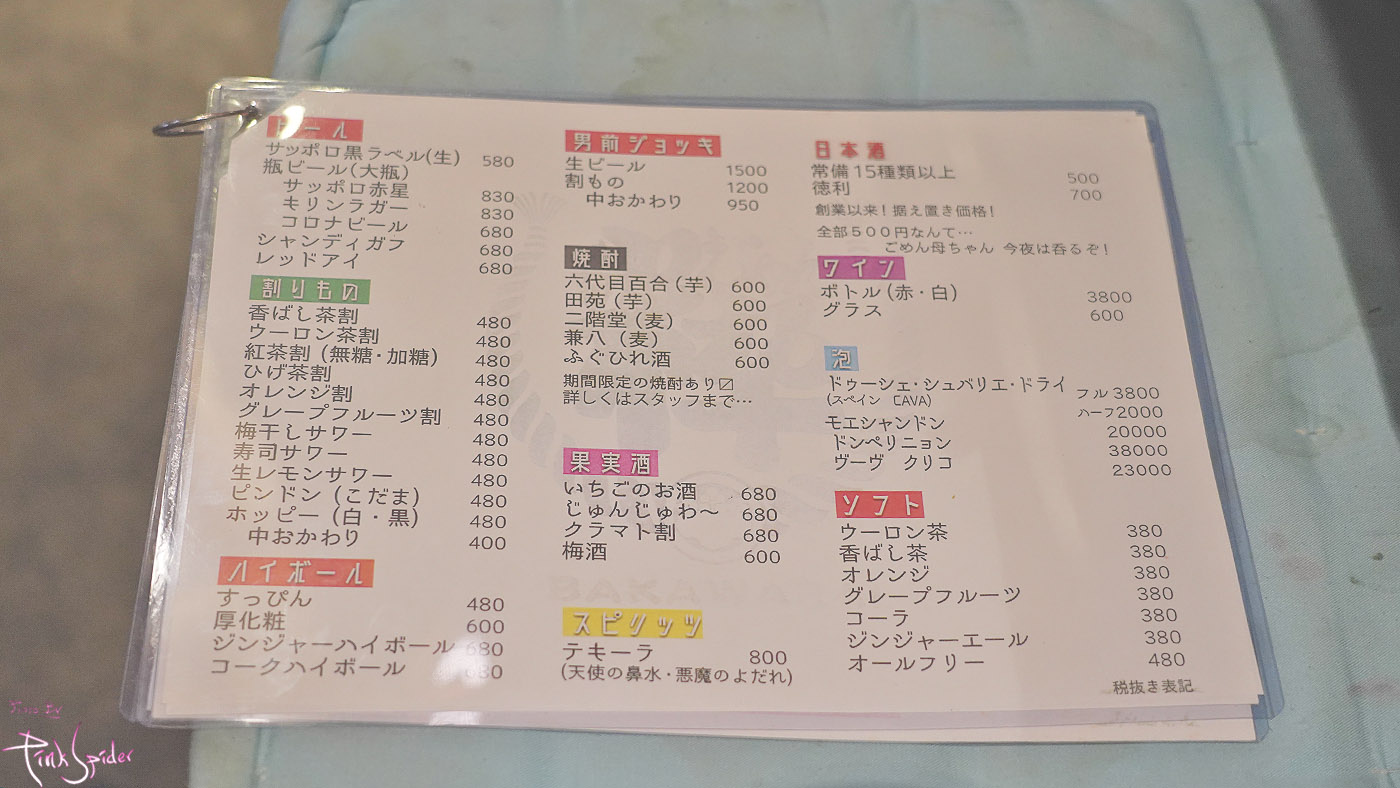 ビール
サッポロ黒ラベル(生) 580
瓶ビール(大瓶)
サッポロ赤星 830
キリンラガー 830
コロナビール 680
シャンディガフ 680
レッドアイ 680
割りもの
香ばし茶割 480
ウーロン茶割 480
紅茶割(無糖・加糖) 480
ひげ茶割 480
オレンジ割 480
グレープフルーツ割 480
梅干しサワー 480
寿司サワー 480
生レモンサワー 480
ピンドン(こだま) 480
ホッピー(白・黒) 480
中おかわり 400
ハイボール
すっぴん 480
厚化粧 600
ジンジャーハイボール 680
コークハイボール 680
男前ジョッキ
生ビール 1500
割もの 1200
中おかわり 950
焼酎
六代目百合(芋) 600
田苑(芋) 600
二階堂(麦) 600
兼八(麦) 600
ふぐひれ酒 600
期間限定の焼酎あり〼
詳しくはスタッフまで…
果実酒
いちごのお酒 680
じゅんじゅわ〜 680
クラマト割 680
梅酒 600
スピリッツ
テキーラ 800
(天使の鼻水・悪魔のよだれ)
日本酒
常備15種類以上 500
徳利 700
創業以来!据え置き価格!
全部500円なんて…
ごめん母ちゃん 今夜は呑るぞ!
ワイン
ボトル(赤・白) 3800
グラス 600
泡
ドゥーシェ・シュバリエ・ドライ フル 3800
(スペイン CAVA) ハーフ2000
モエシャンドン 20000
ドンペリニョン 38000
ヴーヴ クリコ 23000
ソフト
ウーロン茶 380
香ばし茶 380
オレンジ 380
グレープフルーツ 380
コーラ 380
ジンジャーエール 380
オールフリー 480
税抜き表記
Pink Spider